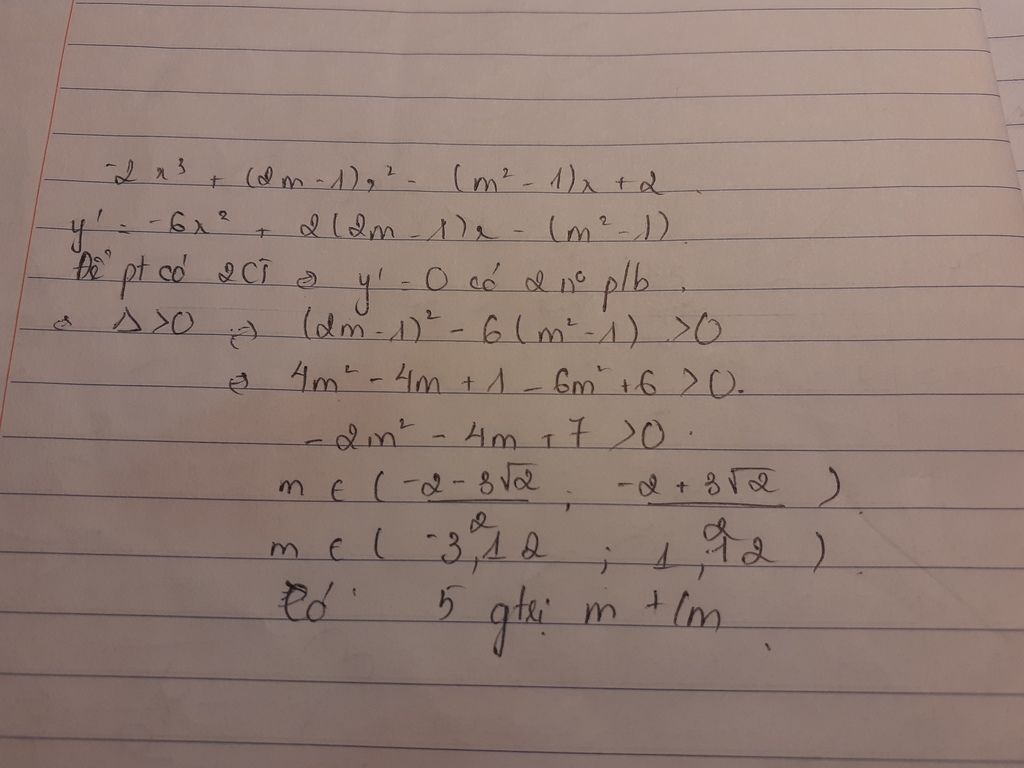 -2x³ + (2m-1)x² - (m²-1)x + 2
y' = -6x² + 2(2m-1)x - (m²-1)
Để pt có 2CT ⇔ y' = 0 có 2 n⁰ p/b.
⇔ Δ>0 ⇔ (2m-1)² - 6(m²-1) >0
⇔ 4m² - 4m + 1 - 6m² + 6 >0.
-2m² - 4m + 7 >0.
m ∈ ( (-2-3√2)/2 ; (-2+3√2)/2 )
m ∈ ( -3,12 ; 1,12 )
Có 5 gtrị m t/m